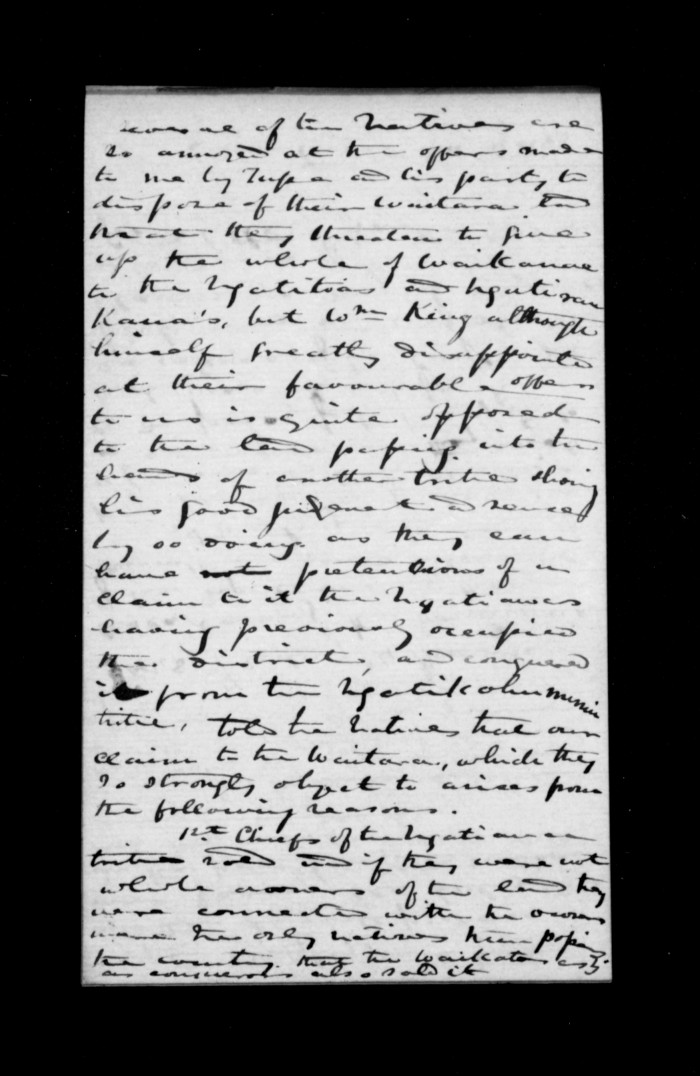 several of the Natives are
so annoyed at the offers made
to me by Tupe and his party to
dispose of their Waitara land
that they threaten to give
up the whole of Waikanae
to the Ngatitoas and Ngatirau
kaua's, but Wm King although
himself greatly disappointed
at their favourable offers
to us is quite opposed
to the land passing into the
hands of another tribe showing
his good judgment and sense
by so doing as they can
have pretensions of
claim to it the Ngatiawas
having previously occupied
the district, and conquered
it from the
tribe, told the Natives that our
claim to the Waitara, which they
so strongly object to arises from
the following reasons.
1st Chiefs of the Ngatiawa
tribe sold and if they were not
whole owners of the land they
were connected with the owners
were the only natives then
the country that the Waikatos
as conquerors also sold it